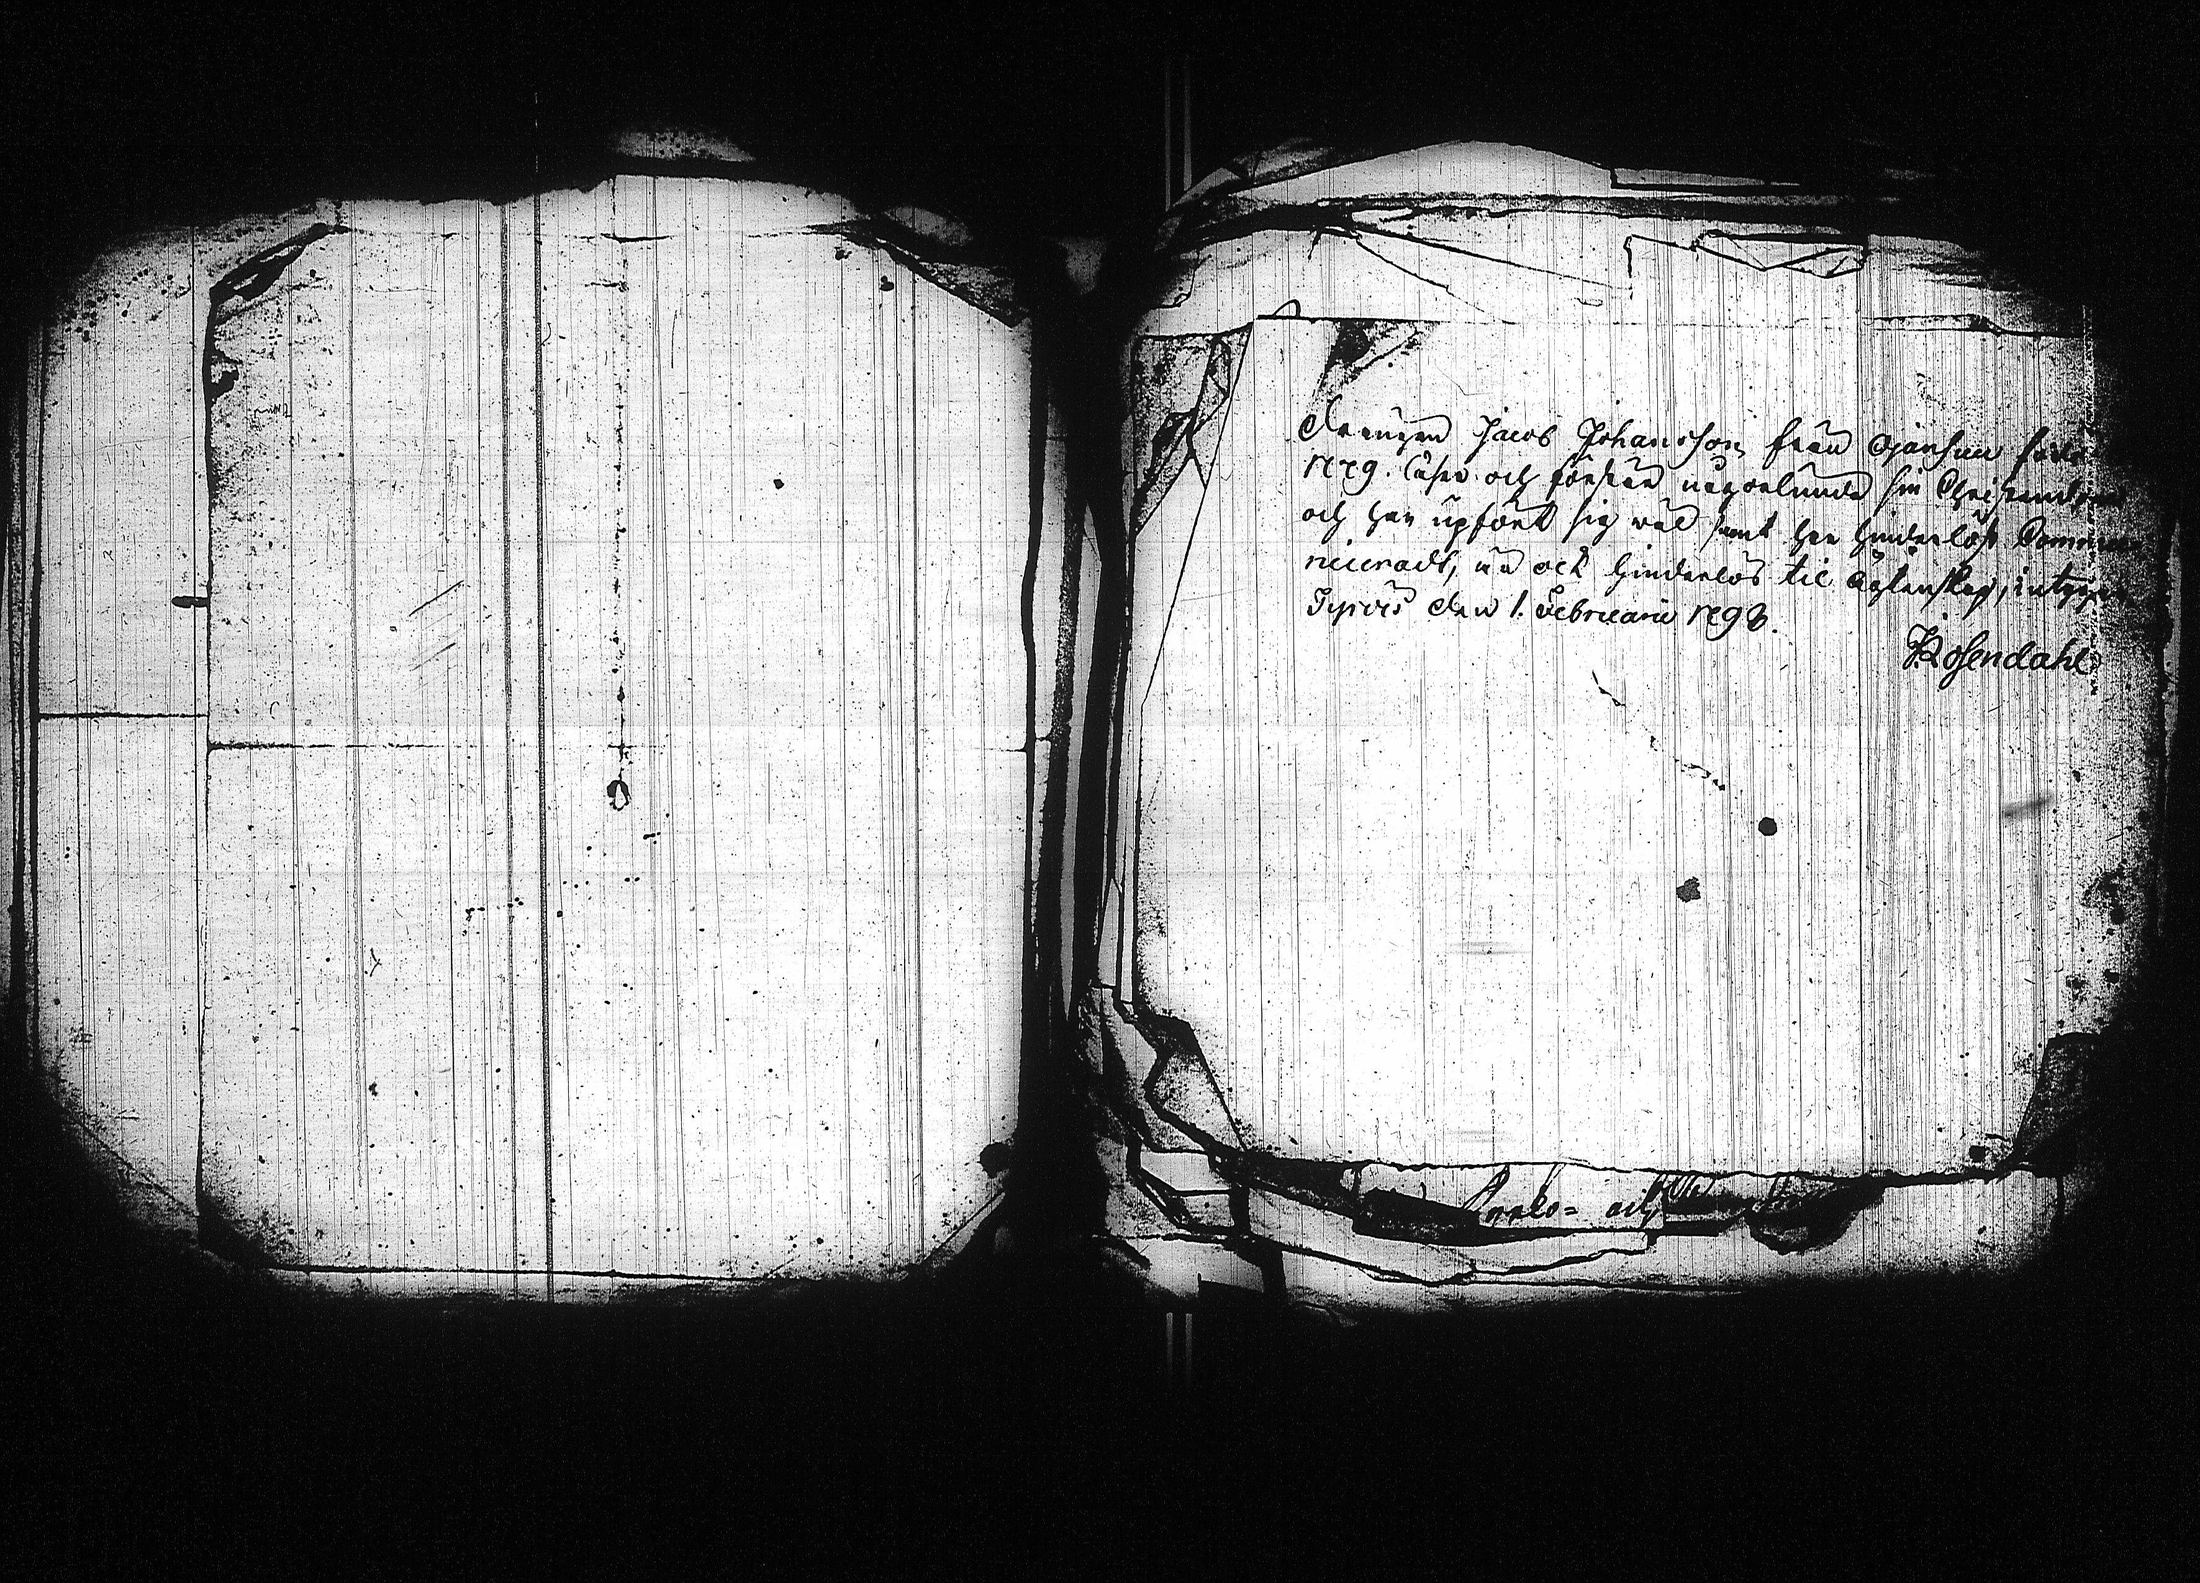 Drängen Jacob Johansson från Ojansuu född
1779. Läser och förstår någorlunda sin Christendom
och har upfört sig väl samt har hinderlöst Commu
niceradt, är ock hinderlös til Ägtenskap, intygar
Tyrvis den 1. Februarii 1798.
JRosendahl
och